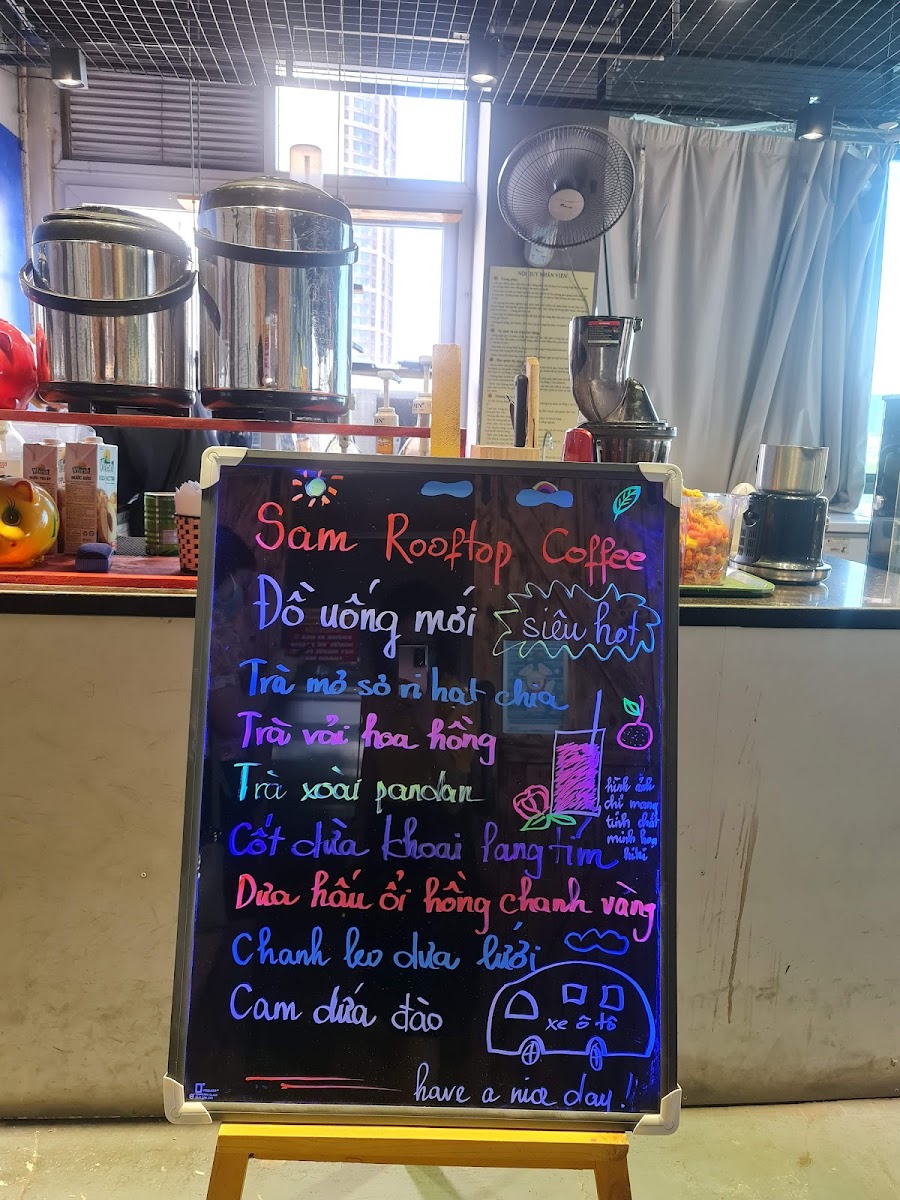 NỘI QUY NHÂN VIÊN
Sam Rooftop Coffee
Đồ uống mới
siêu hot
Trà mơ sơ ri hạt chia
Trà vải hoa hồng
Trà xoài pandan
hình ảnh
chỉ mang
tính chất
minh hoạ
hihi
Cốt dừa khoai lang tím
Dưa hấu ổi hồng chanh vàng
Chanh leo dưa lưới
Cam dứa đào
xe ô tô
have a nice day!